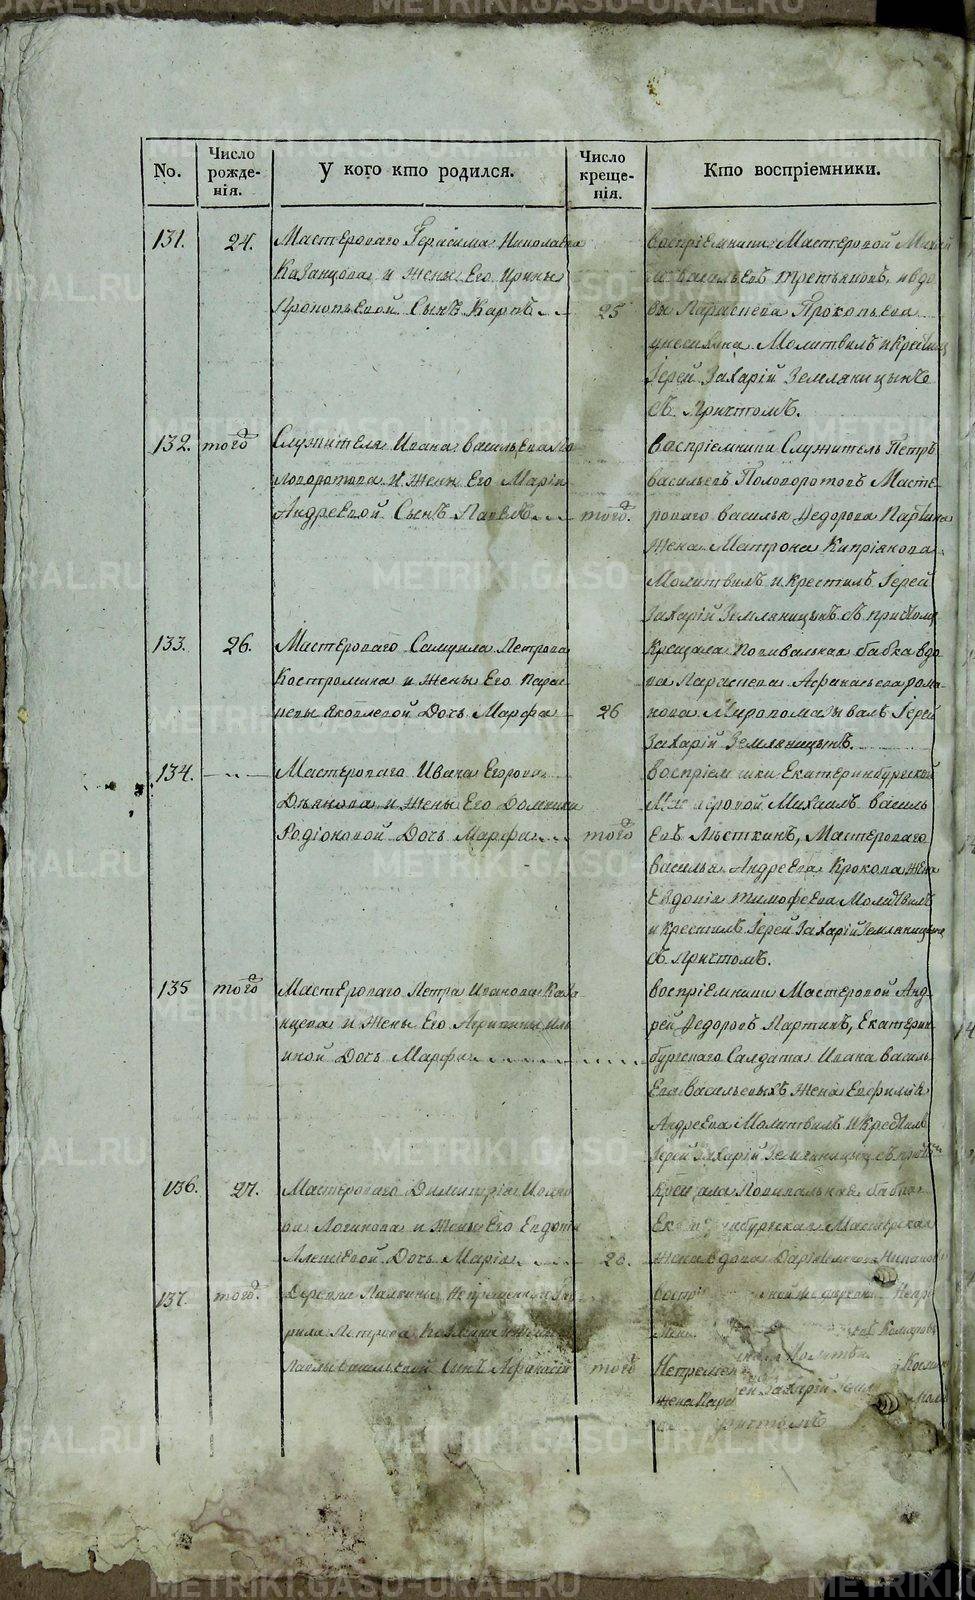 No. Число рожде-нія. У кого кто родился. Число креще-нія. Кто воспріемники.
131. 24. Мастероваго Герасима Николаева
Казанцова и жены Его Ирины
Прокопьевой Сынъ Карпъ 25
воспріемники Мастеровой
васильевъ третьяковъ, и вдо
вы Параскева Прокопьева
Молитвилъ и Крестилъ
Іерей Захарій Земляницынъ
съ Причтомъ.
132. того Служителя Ивана васильева По
ловоротова и Жены Его Маріи
Андреевой Сынъ Павелъ того.
воспріемники Служитель Петръ
васильевъ Половоротовъ Масте-
роваго василья Федорова Паршина
жена Матрона Кипріянова
Молитвилъ и крестилъ Іерей
Захарій Земляницынъ съ причтомъ
133. 26. Мастероваго Самуила Петрова
Костромина и жены Его Парас-
кевы Яковлевой Дочь Марфа 26
Крещала Повивальная бабка вдо
ва Параскева Афанасьева рома-
нова Миропомазывалъ Іерей
Захарій Земляницынъ.
134. Мастероваго Ивана Егорова
Дьякова и жены Его Домники
Родіоновой Дочь Марфа того
воспріемники Екатеринбургской
Мастеровой Михаилъ василь
евъ Мастероваго
василья Андреева Крокова жена
Евдокія тимофеева Молитвилъ
и крестилъ Іерей Захарій Земляницынъ
съ Причтомъ.
135 того Мастероваго Петра Иванова Казан
цева и жены Его Агрипины Иль
иной Дочь Марфа
воспріемники Мастеровой Анд-
рей Федоровъ Партинъ, Екатерин-
бургскаго Салдата Ивана василь
Ева васильевыхъ жена Евфимія
Андреева Молитвилъ и Крестилъ
Іерей Захарій Земляницынъ съ прич
136. 27. Мастероваго Димитрія Ивано
ва Логинова и жены Его Евдоки
Алексевой Дочь Марія 28
Крещала Повивальная бабка
Екатеринбургская Мастерская
жена вдова Дарія
137. того. Деревни Палкиной Непременнаго
рила Петрова
васильевой Сынъ Афанасій того
Непремен
жена Парас ей Захарій Земл
причтомъ
METRIKI.GASO-URAL.RU